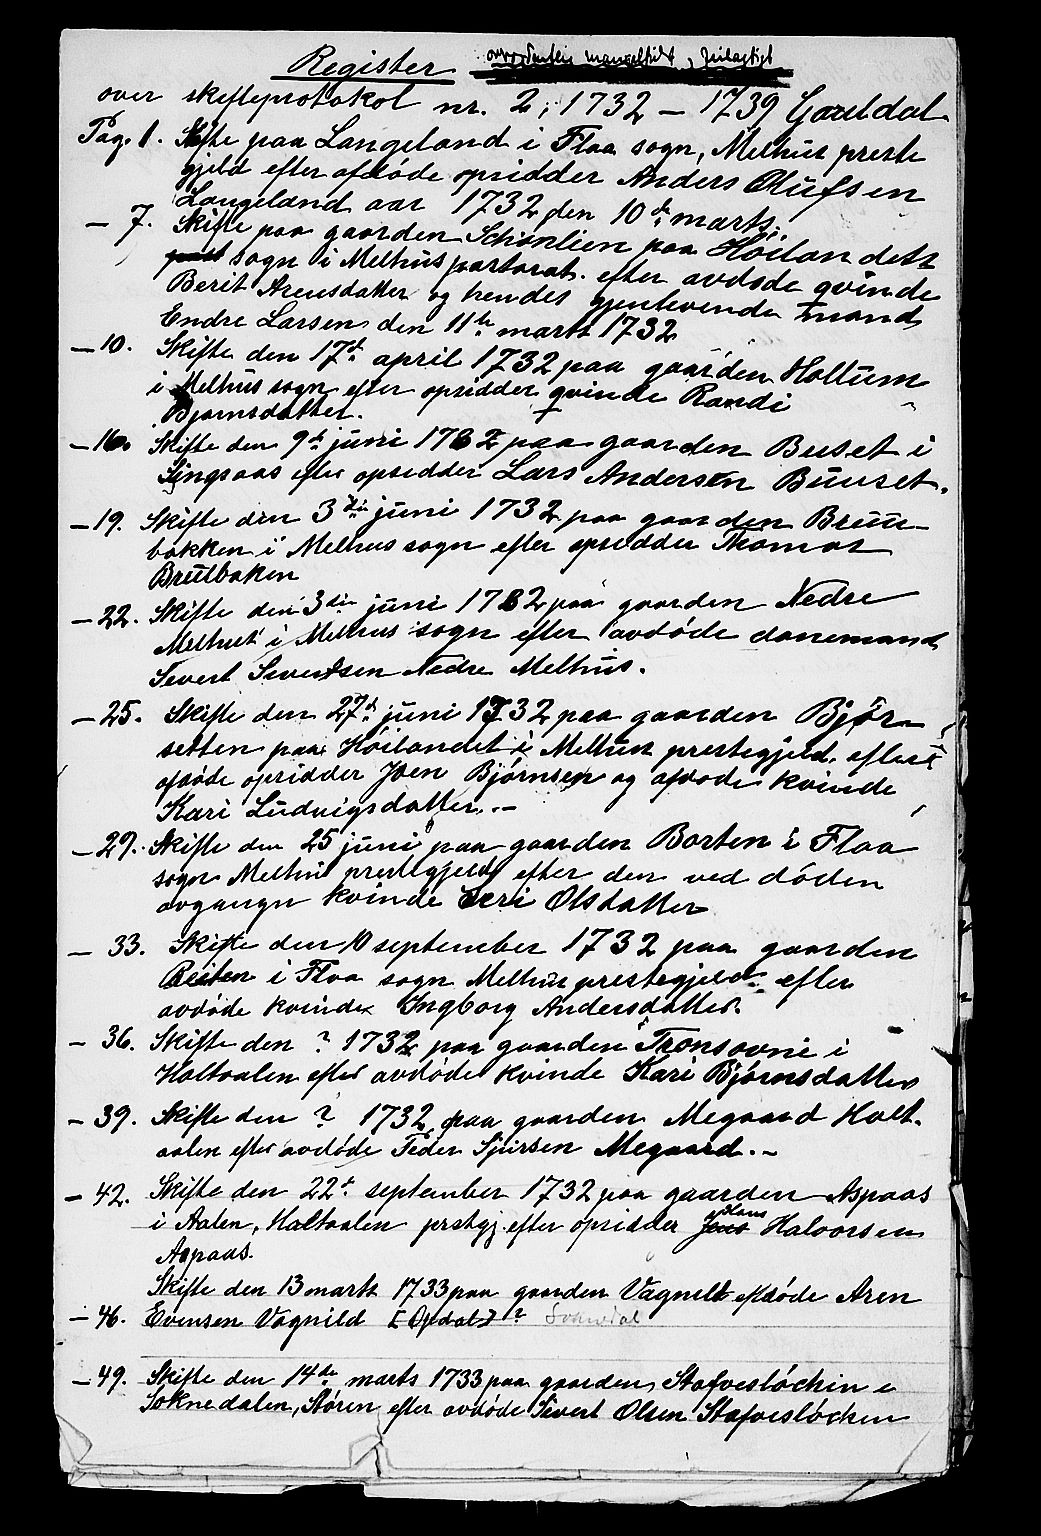 Register overordentlig mangelfuldt, feilagtigt
over skifteprotokol nr. 2, 1732 – 1739 Gauldal
Pag. 1. Skifte paa Langeland i Flaa sogn, Melhus preste
gjeld efter afdøde opsidder Anders Olufsen
Langeland aar 1732 den 10de marts.
– 7. Skifte paa gaarden paa Höilandets
sogn i Melhus pastorat efter avdøde qvinde
Berit Arensdatter og hendes gjenlevende mand
Endre Larsen den 11te marts 1732
– 10. Skifte den 17de april 1732 paa gaarden Hollum
i Melhus sogn efter opsidder qvinde Randi
Bjørnsdatter.
– 16. Skifte den 9de juni 1732 paa gaarden Buset i
Singsaas efter opsidder Lars Andersen Buuset.
– 19. Skifte den 3die juni 1732 paa gaarden Bruu–
bakken i Melhus sogn efter opsidder Thomas
Bruubaken
– 22. Skifte den 3die juni 1732 paa gaarden Nedre
Melhus i Melhus sogn efter avdøde danemand
Severt Sivertsen Nedre Melhus.
– 25. Skifte den 27de juni 1732 paa gaarden Bjør–
setten paa Höilandet i Melhus prestegjeld, efter
afdøde opsidder Joen Bjørnsen og afdøde kvinde
Kari Ludvigsdatter. –
– 29. Skifte den 25 juni paa gaarden Borten i Flaa
sogn Melhus prestegjeld efter den ved døden
avgangn kvinde Siri Olsdatter
– 33. Skifte den 10 september 1732 paa gaarden
Reiten i Flaa sogn Melhus prestegjeld efter
avdøde kvinde Ingborg Andersdatter.
– 36. Skifte den ? 1732 paa gaarden Tronsovni i
Holtaalen efter avdøde kvinde Kari Bjørnsdatter
– 39. Skifte den ? 1732 paa gaarden Megaard Holt.
aalen efter avdøde Peder Sjursen Megaard. –
– 42. Skifte den 22de september 1732 paa gaarden Aspaas
i Aalen, Holtaalen prstgj. efter opsidder Jens Hans Halvorsen
Aspaas.
Skifte den 13 marts 1733 paa gaarden Vagnild eft døde Aren
– 46. Evensen Vagnild [Opdal] ? Soknedal
– 49. Skifte den 14de marts 1733 paa gaarden Stafvesløckin i
Soknedalen, Støren efter avdøde Sivert Olsen Stafvesløcken